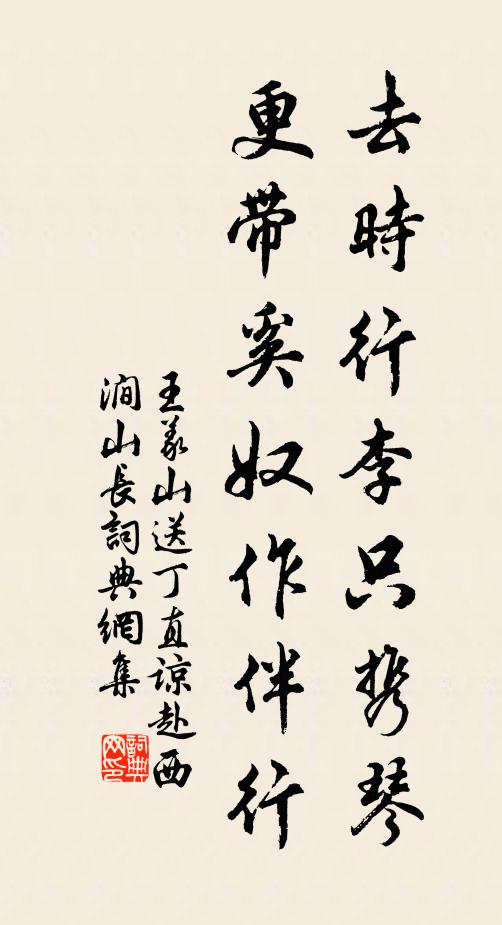 去時行李只携琴
更帶奚奴作伴行
王義山送丁直諒赴西
澗山長詞典網集
詞典网印